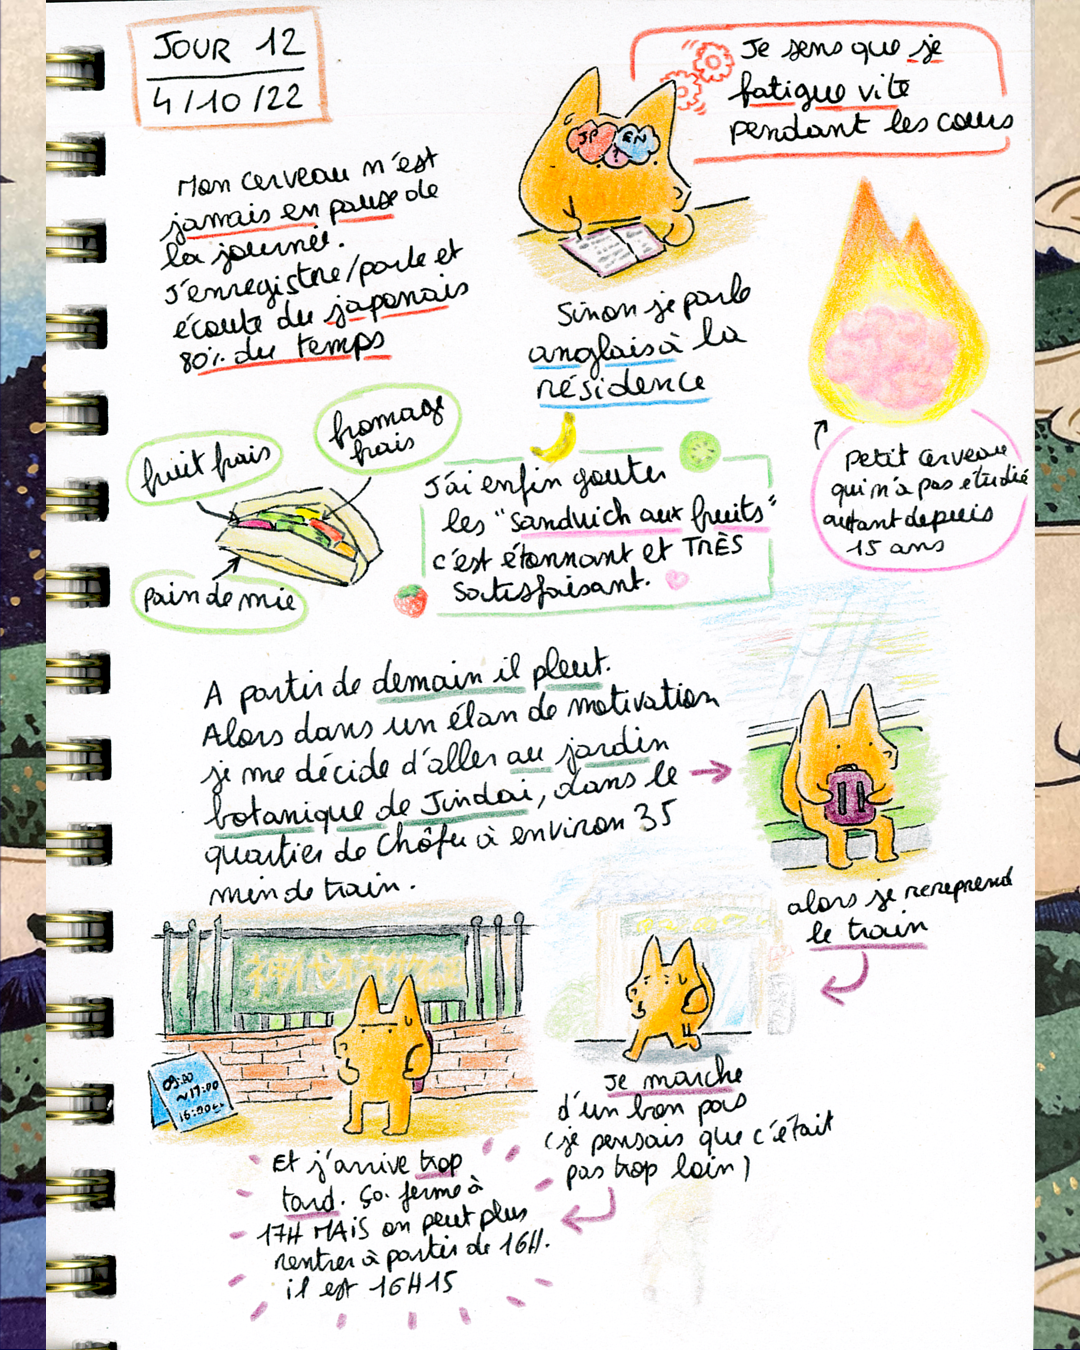 JOUR 12
4/10/22
Je sens que je
fatigue vite
pendant les cours
JP
EN
?
Mon cerveau n'est
jamais en pause de
la journée.
J'enregistre/parle et
écoute du japonais
80% du temps
Sinon je parle
anglais à la
résidence
petit cerveau
qui n'a pas étudié
autant depuis
15 ans
fruit frais
fromage
frais
pain de mie
J'ai enfin gouter
les "sandwich aux fruits"
c'est étonnant et TRÈS
satisfaisant.
A partir de demain il pleut.
Alors dans un élan de motivation
je me décide d'aller au jardin
botanique de Jindai, dans le
quartier de Chôfu à environ 35
min de train.
alors je rereprend
le train
神代植物公園
09:30
~17:00
16:00
Je marche
d'un bon pas
(je pensais que c'était
pas trop loin)
Et j'arrive trop
tard. Ça ferme à
17H MAIS on peut plus
rentrer à partir de 16H.
il est 16H15